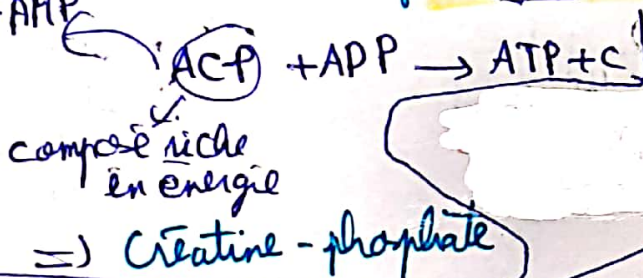 AMP
ACP + ADP → ATP + C
composé riche
en énergie
=) Créatine - phosphate